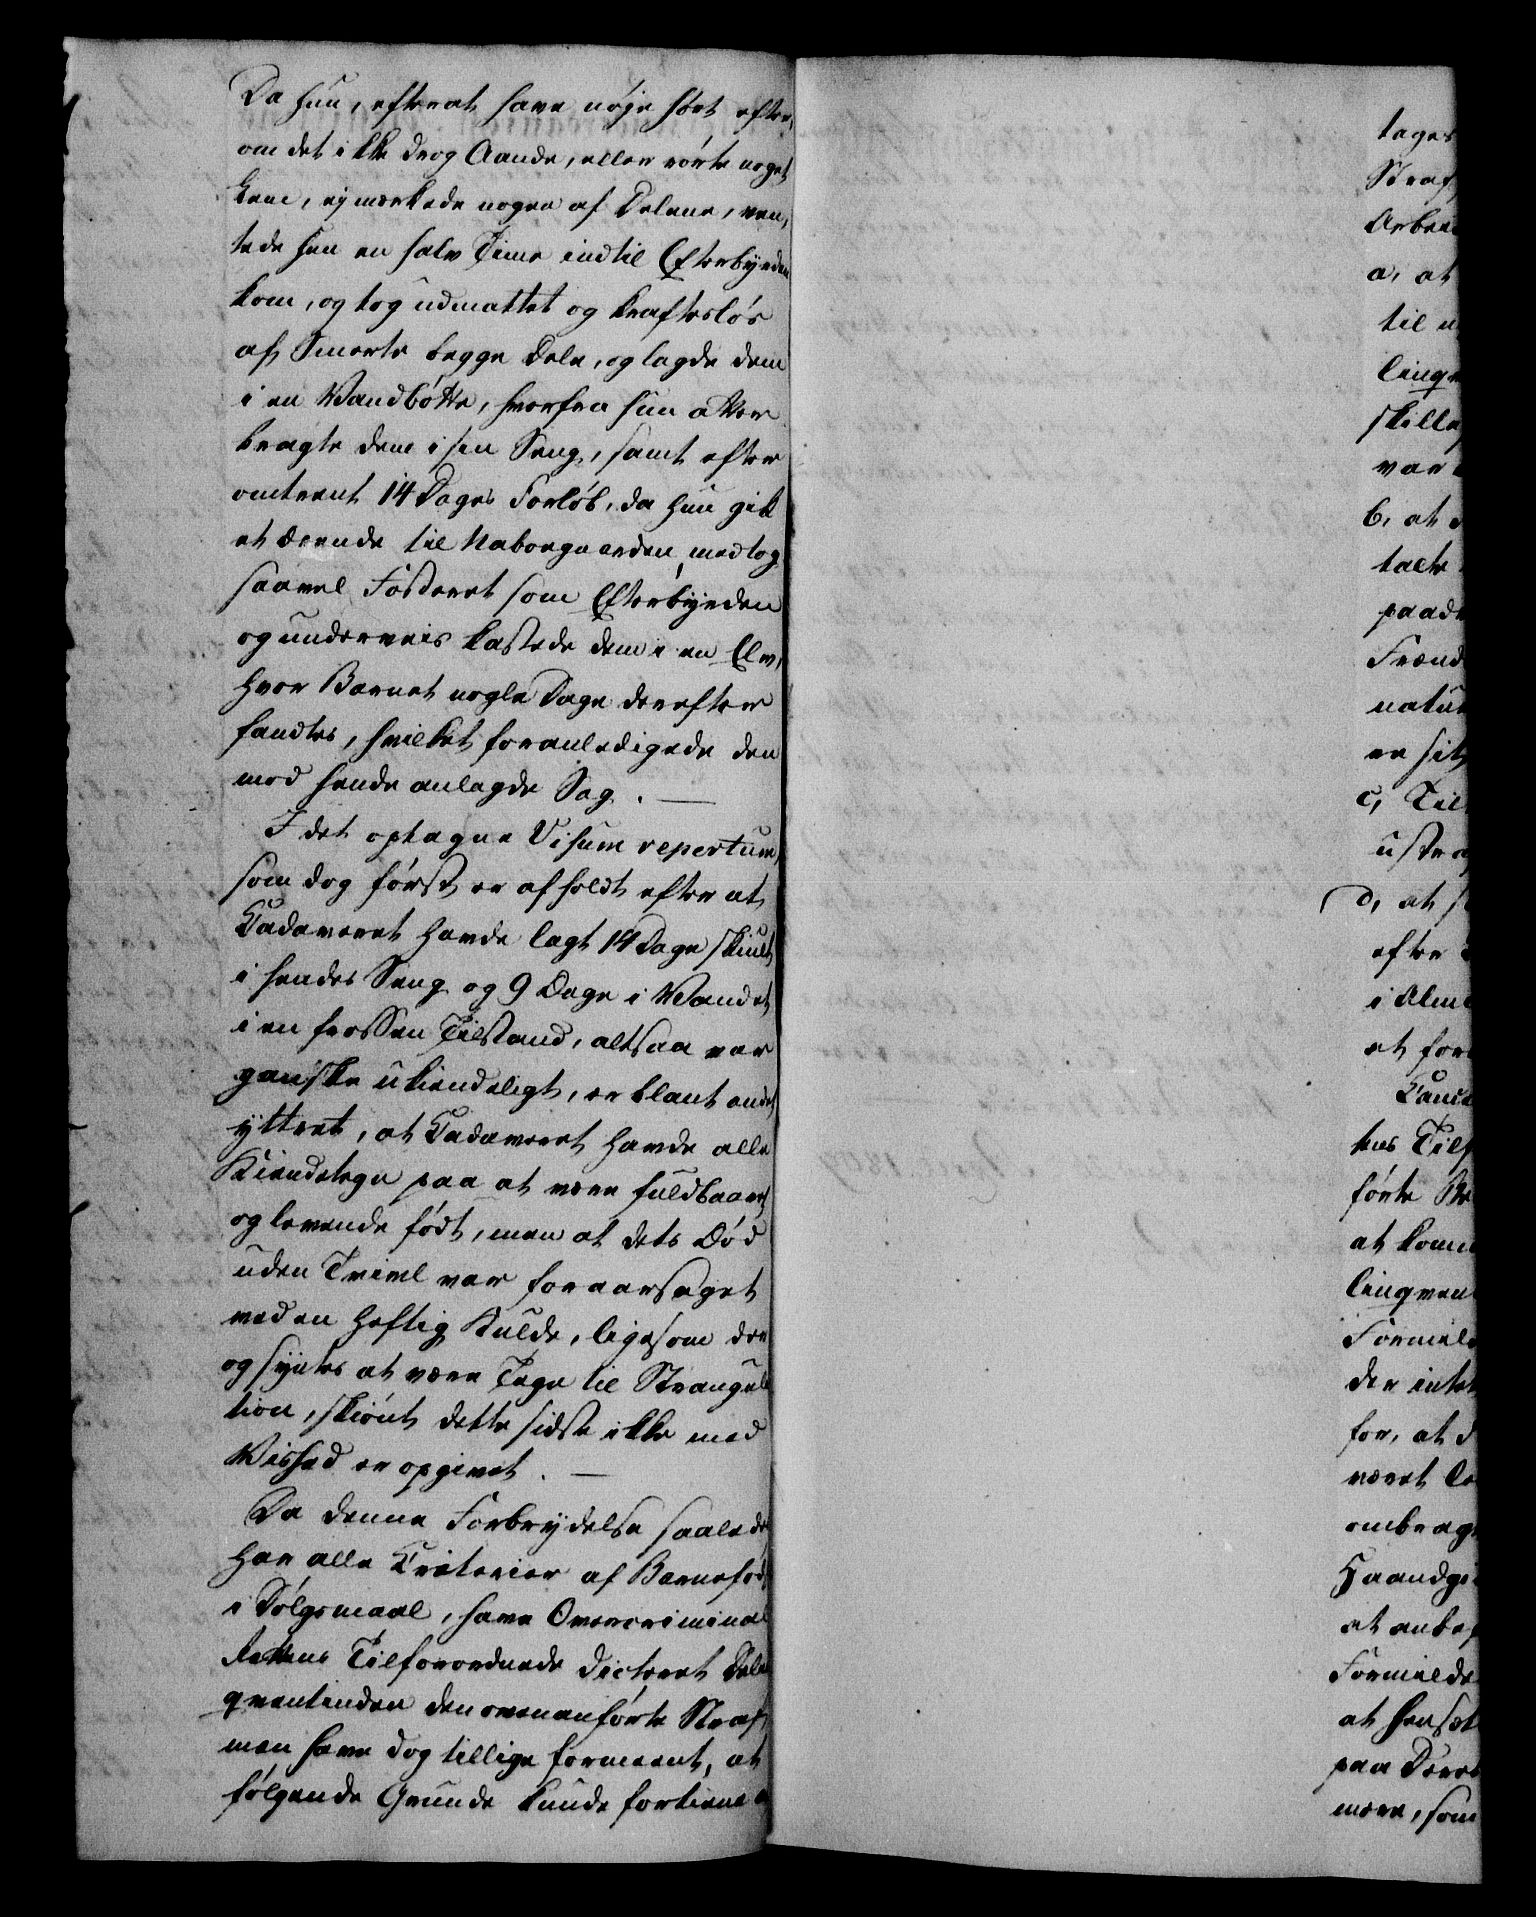 Da hun, efterat have nøje hørt efter,
om det ikke drog Aande, eller rørte noget
Lem, ej mærkede nogen af Delene, ven,
tede hun en halv Time indtil Efterbyrden
kom, og tog udmattet og kraftesløs
af Smerte begge Dele, og lagde dem
i en Vandbøtte, hvorfra hun atter
bragte dem i sin Seng, samt efter
omtrent 14 Dages Forløb, da hun gik
et Ærende til Naboegaarden, medtog
saavel Fosteret som Efterbyrden
og underveis kastede dem i en Elv,
hvor Barnet nogle Dage derefter
fandtes, hvilket foranledigede den
mod hende anlagde Sag. —
I det optagne Visum repertum,
som dog først er afholdt efter at
Cadaveret havde lagt 14 Dage skiult
i hendes Seng og 9 Dage i Vandet
i en frossen Tilstand, altsaa var
ganske ukiendeligt, er blant andet
yttret, at Cadaveret havde alle
Kiendetegn paa at være fuldbaaret
og levende født, men at dets Død
uden Tvivl var foraarsaget
ved en heftig Kulde, ligesom der
og syntes at være Tegn til Strangula
tion, skiønt dette sidste ikke med
Vished er opgivet. —
Da denne Forbrydelse saaledes
har alle Criterier af Barnefødsel
i Dølgsmaal, have Overcriminal
Rettens Tilforordnede dicteret Delin
qventinden den ovenanførte Straf,
men have dog tillige formeent, at
følgende Grunde kunde fortiene
tages
Straf
a, at
til
var
b, at
talte
paad
natu
er sit
c, Til
uste
d, at
efter
i Alm
et for
tens Tilf
førte Be
at kom
linqven
Formild
der intet
for, at d
været
ombrag
Haandgr
at anbe
Formilde
at hensæt
paa Deres
mere, som